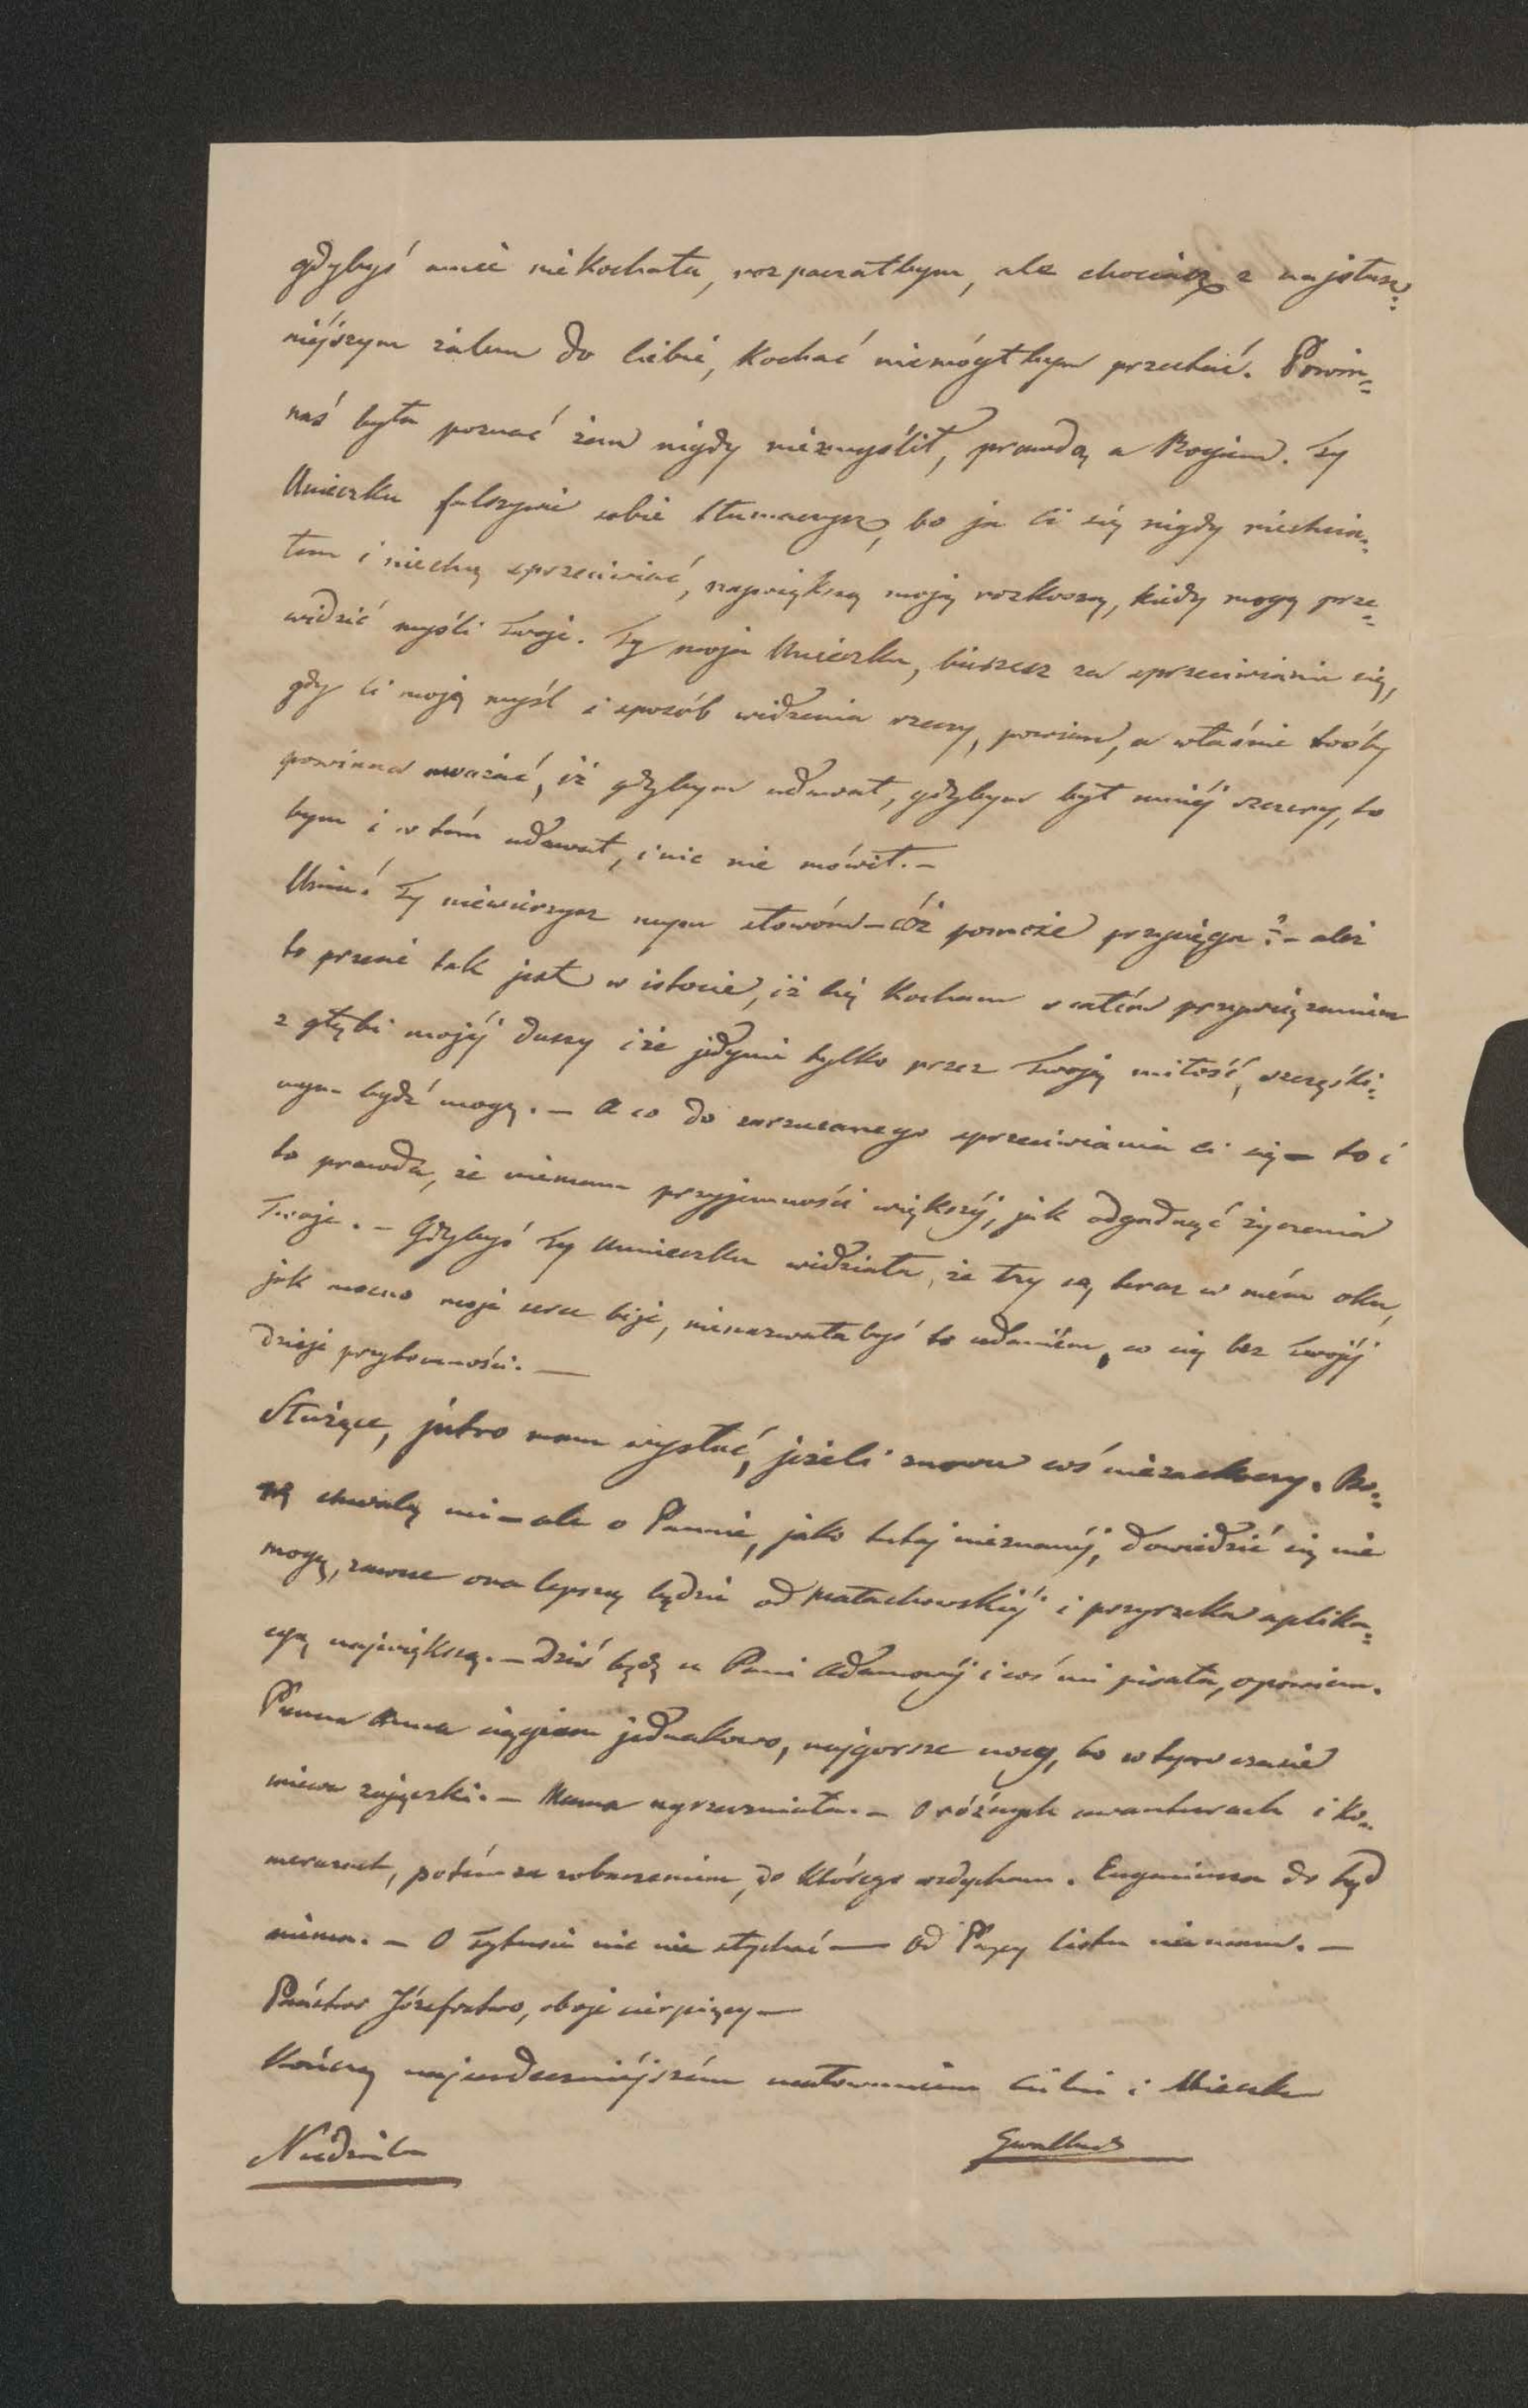 gdybyś mnie niekochała, rozpaczałbym, ale chociaż z najsłusz=
niéjszym żalem do Ciebie, kochać niemógłbym przestać. Powin=
naś była poznać żem nigdy niezmyślił, prawdą a Bogiem. Ty
Unieczku fałszywie sobie tłumaczysz, bo ja Ci się nigdy niechcia=
łem i niechcę sprzeciwiać, największą moją rozkoszą, kiedy mogę prze=
widzić myśli Twoje. Ty moja Unieczku, bierzesz za sprzeciwianie się,
gdy Ci moją myśl i sposób widzenia rzeczy, powiem, a właśnie toby
powinna uważać, iż gdybym udawał, gdybym był mniéj szczery, to
bym i w tém udawał, i nic nie mówił. –
Uniu! Ty niewierzysz mym słowóm – cóż pomoże przysięga? – ależ
to przecie tak jest w istocie, iż Cię kocham z całém przywiązaniem
z głębi mojéj duszy i że jedynie tylko przez Twoją miłość, szczęśli=
wym bydź mogę. – A co do zarzucanego sprzeciwiania Ci się – to i
to prawda, że niemam przyjemności większéj, jak odgadnąć życzenia
Twoje. – Gdybyś Ty Unieczku widziała, że łzy są teraz w mém oku,
jak mocno moje serce bije, nienazwałabyś to udaniem, co się bez Twojéj
dzieje przytomności. —
Służące, jutro mam wysłać, jeżeli znowu coś niezaskoczy.
chwalą mi – ale o Pannie, jako tutaj nieznanéj, dowiedzić się nie
mogę, zawsze ona lepszą będzie od Małachowskiéj i przyrzeka aplika=
cyą największą. – Dziś będę u Pani Adamowéj i coś mi pisała, opowiem.
Panna Anna ciągiem jednakowo, najgorsze nocy, bo w tym czasie
miewa zajączki. – Mama – O różnych awanturach i ko=
merazach, potém za zobaczeniem, do którego wzdycham. Eugeniusza do tąd
niema. – O Tytusie nic nie słychać — Od Papy listu niemam. –
Państwo Józefostwo, oboje cierpiący —
Kończę najserdeczniéjszém ucałowaniem Ciebie i Mieczka
Niedziela